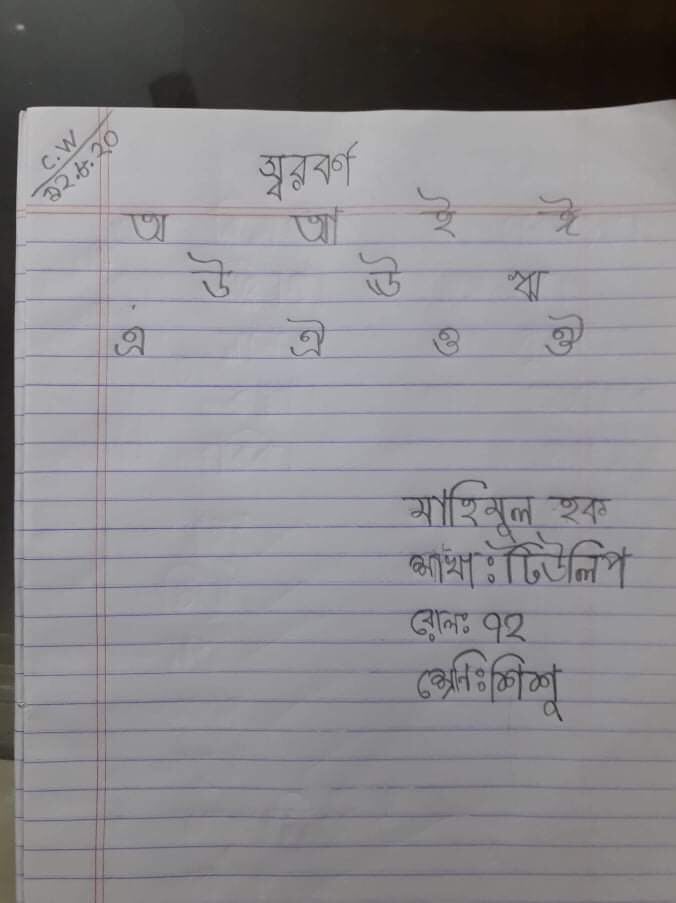 C.W
১২.৮.২০
স্বরবর্ণ
অ আ ই ঈ
উ ঊ ঋ
এ ঐ ও ঔ
মাহিমুল হক
শাখা: টিউলিপ
রোল: ৭২
শ্রেনি: শিশু